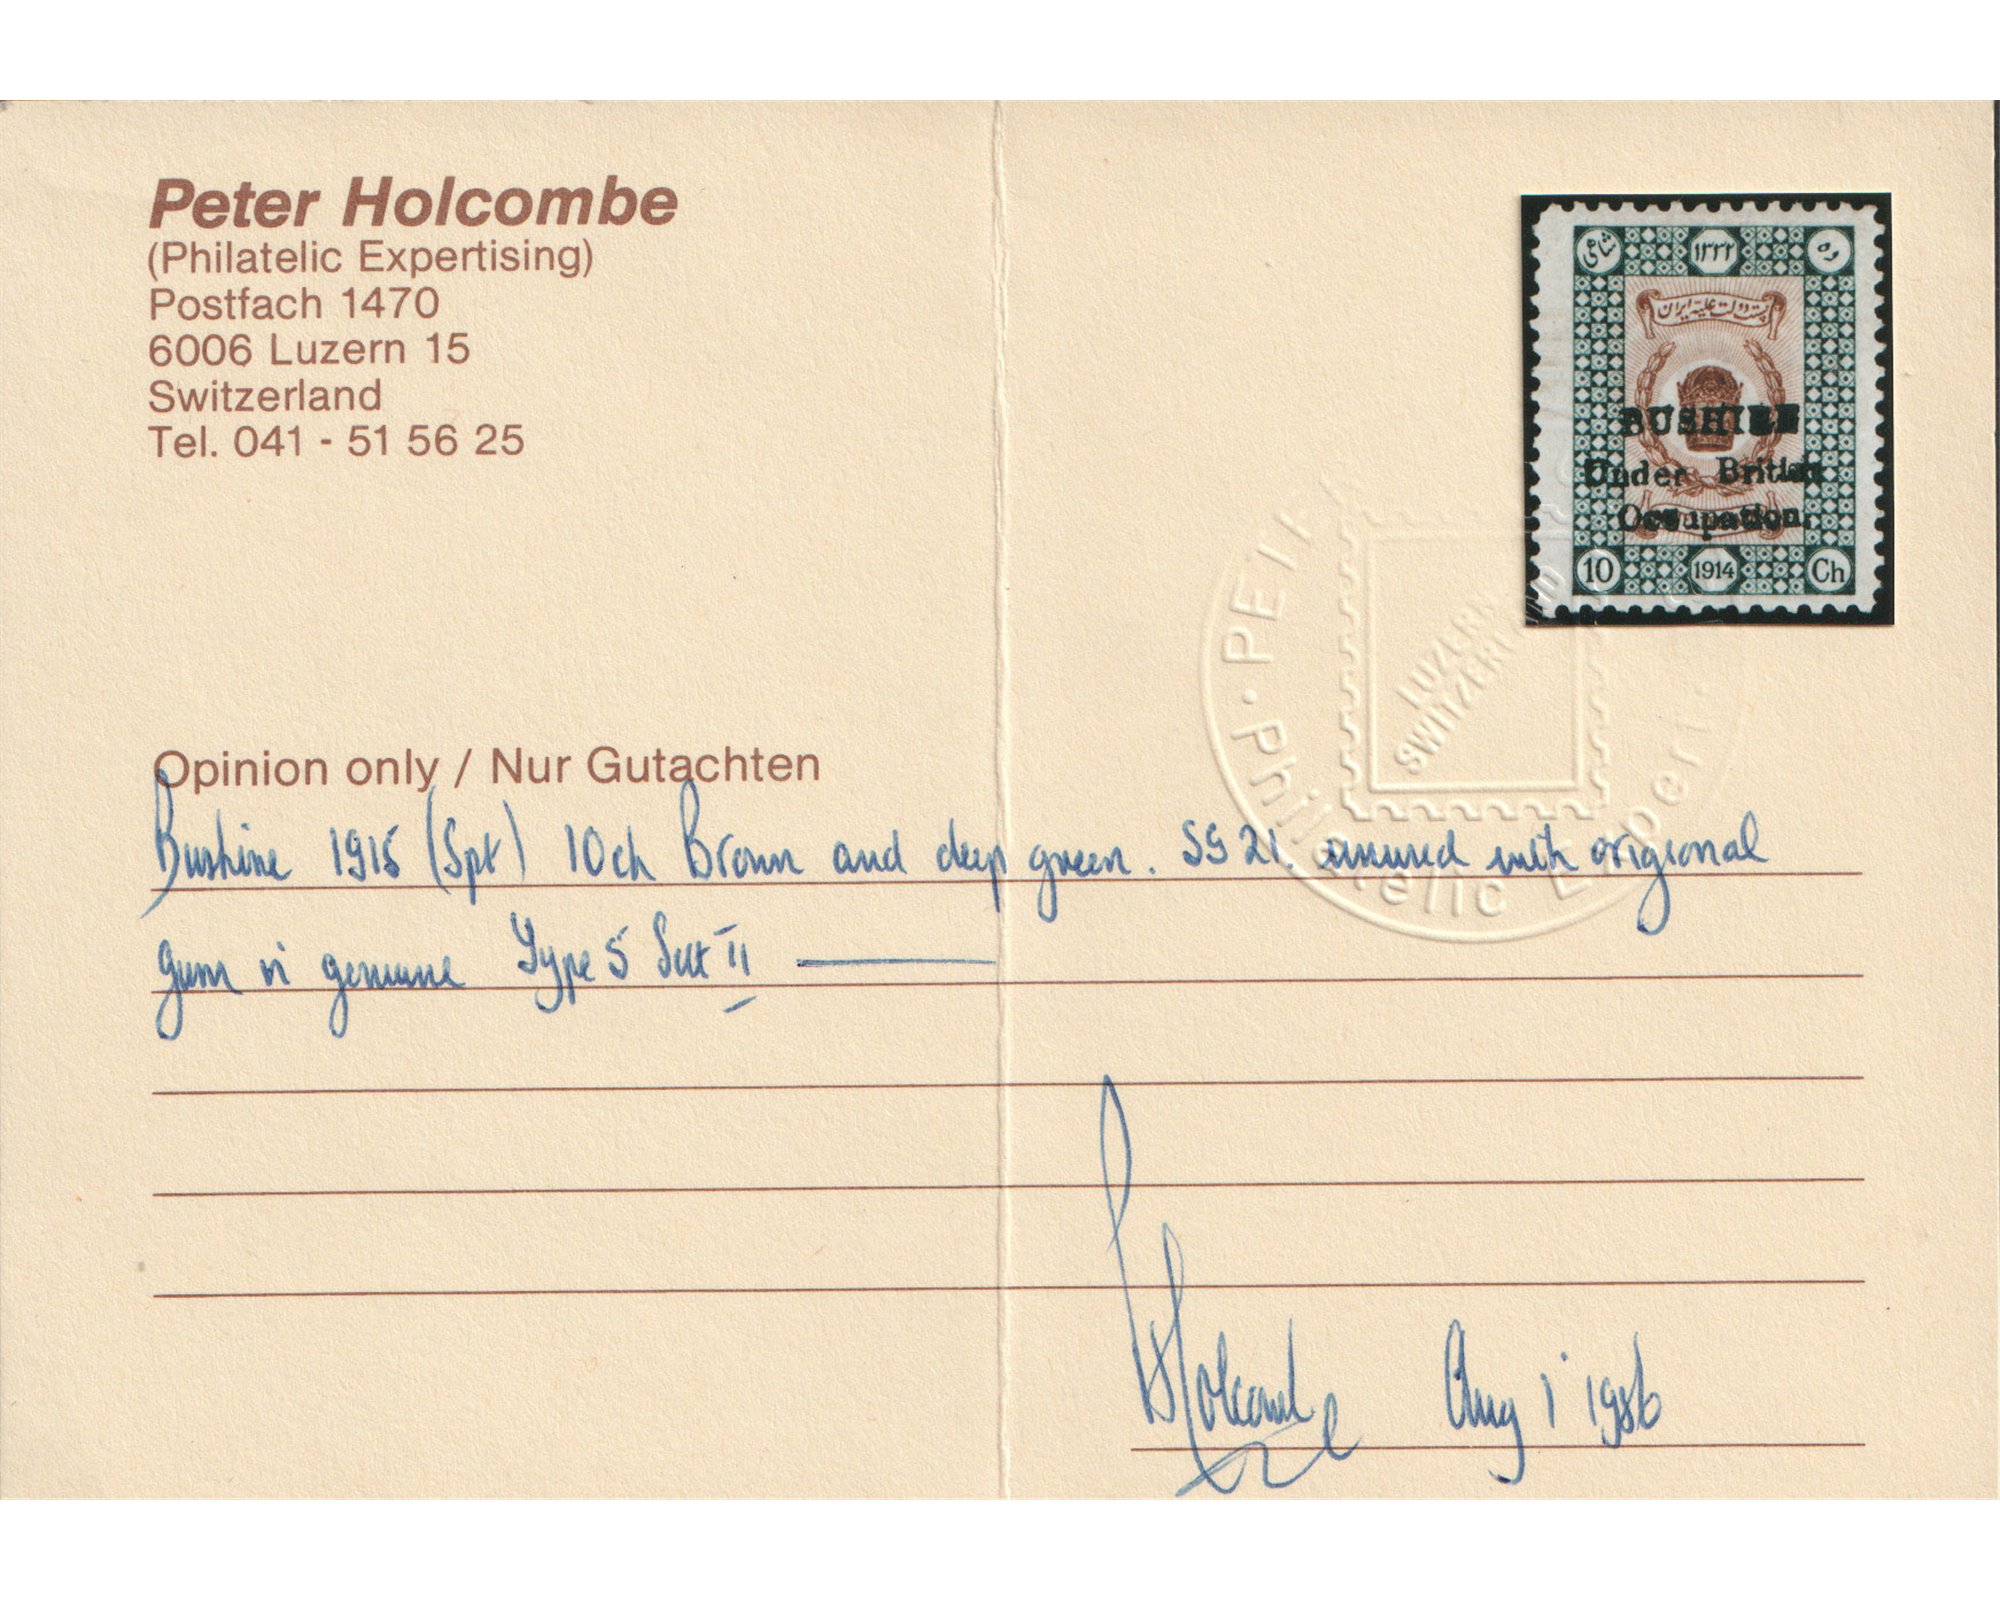 Peter Holcombe
(Philatelic Expertising)
Postfach 1470
6006 Luzern 15
Switzerland
Tel. 041 - 51 56 25
شاهی ۱۳۳۲ ده
پست دولت علیه ایران
BUSHIRE
Under British
Occupation.
10 1914 Ch
PET
LUZERN
SWITZERL
Philatelic Expert
Opinion only / Nur Gutachten
Bushire 1915 (Spt) 10ch Brown and deep green. SG 21. unused with origional
gum is genuine Type 5 Sett II
Holcombe Aug 1 1986